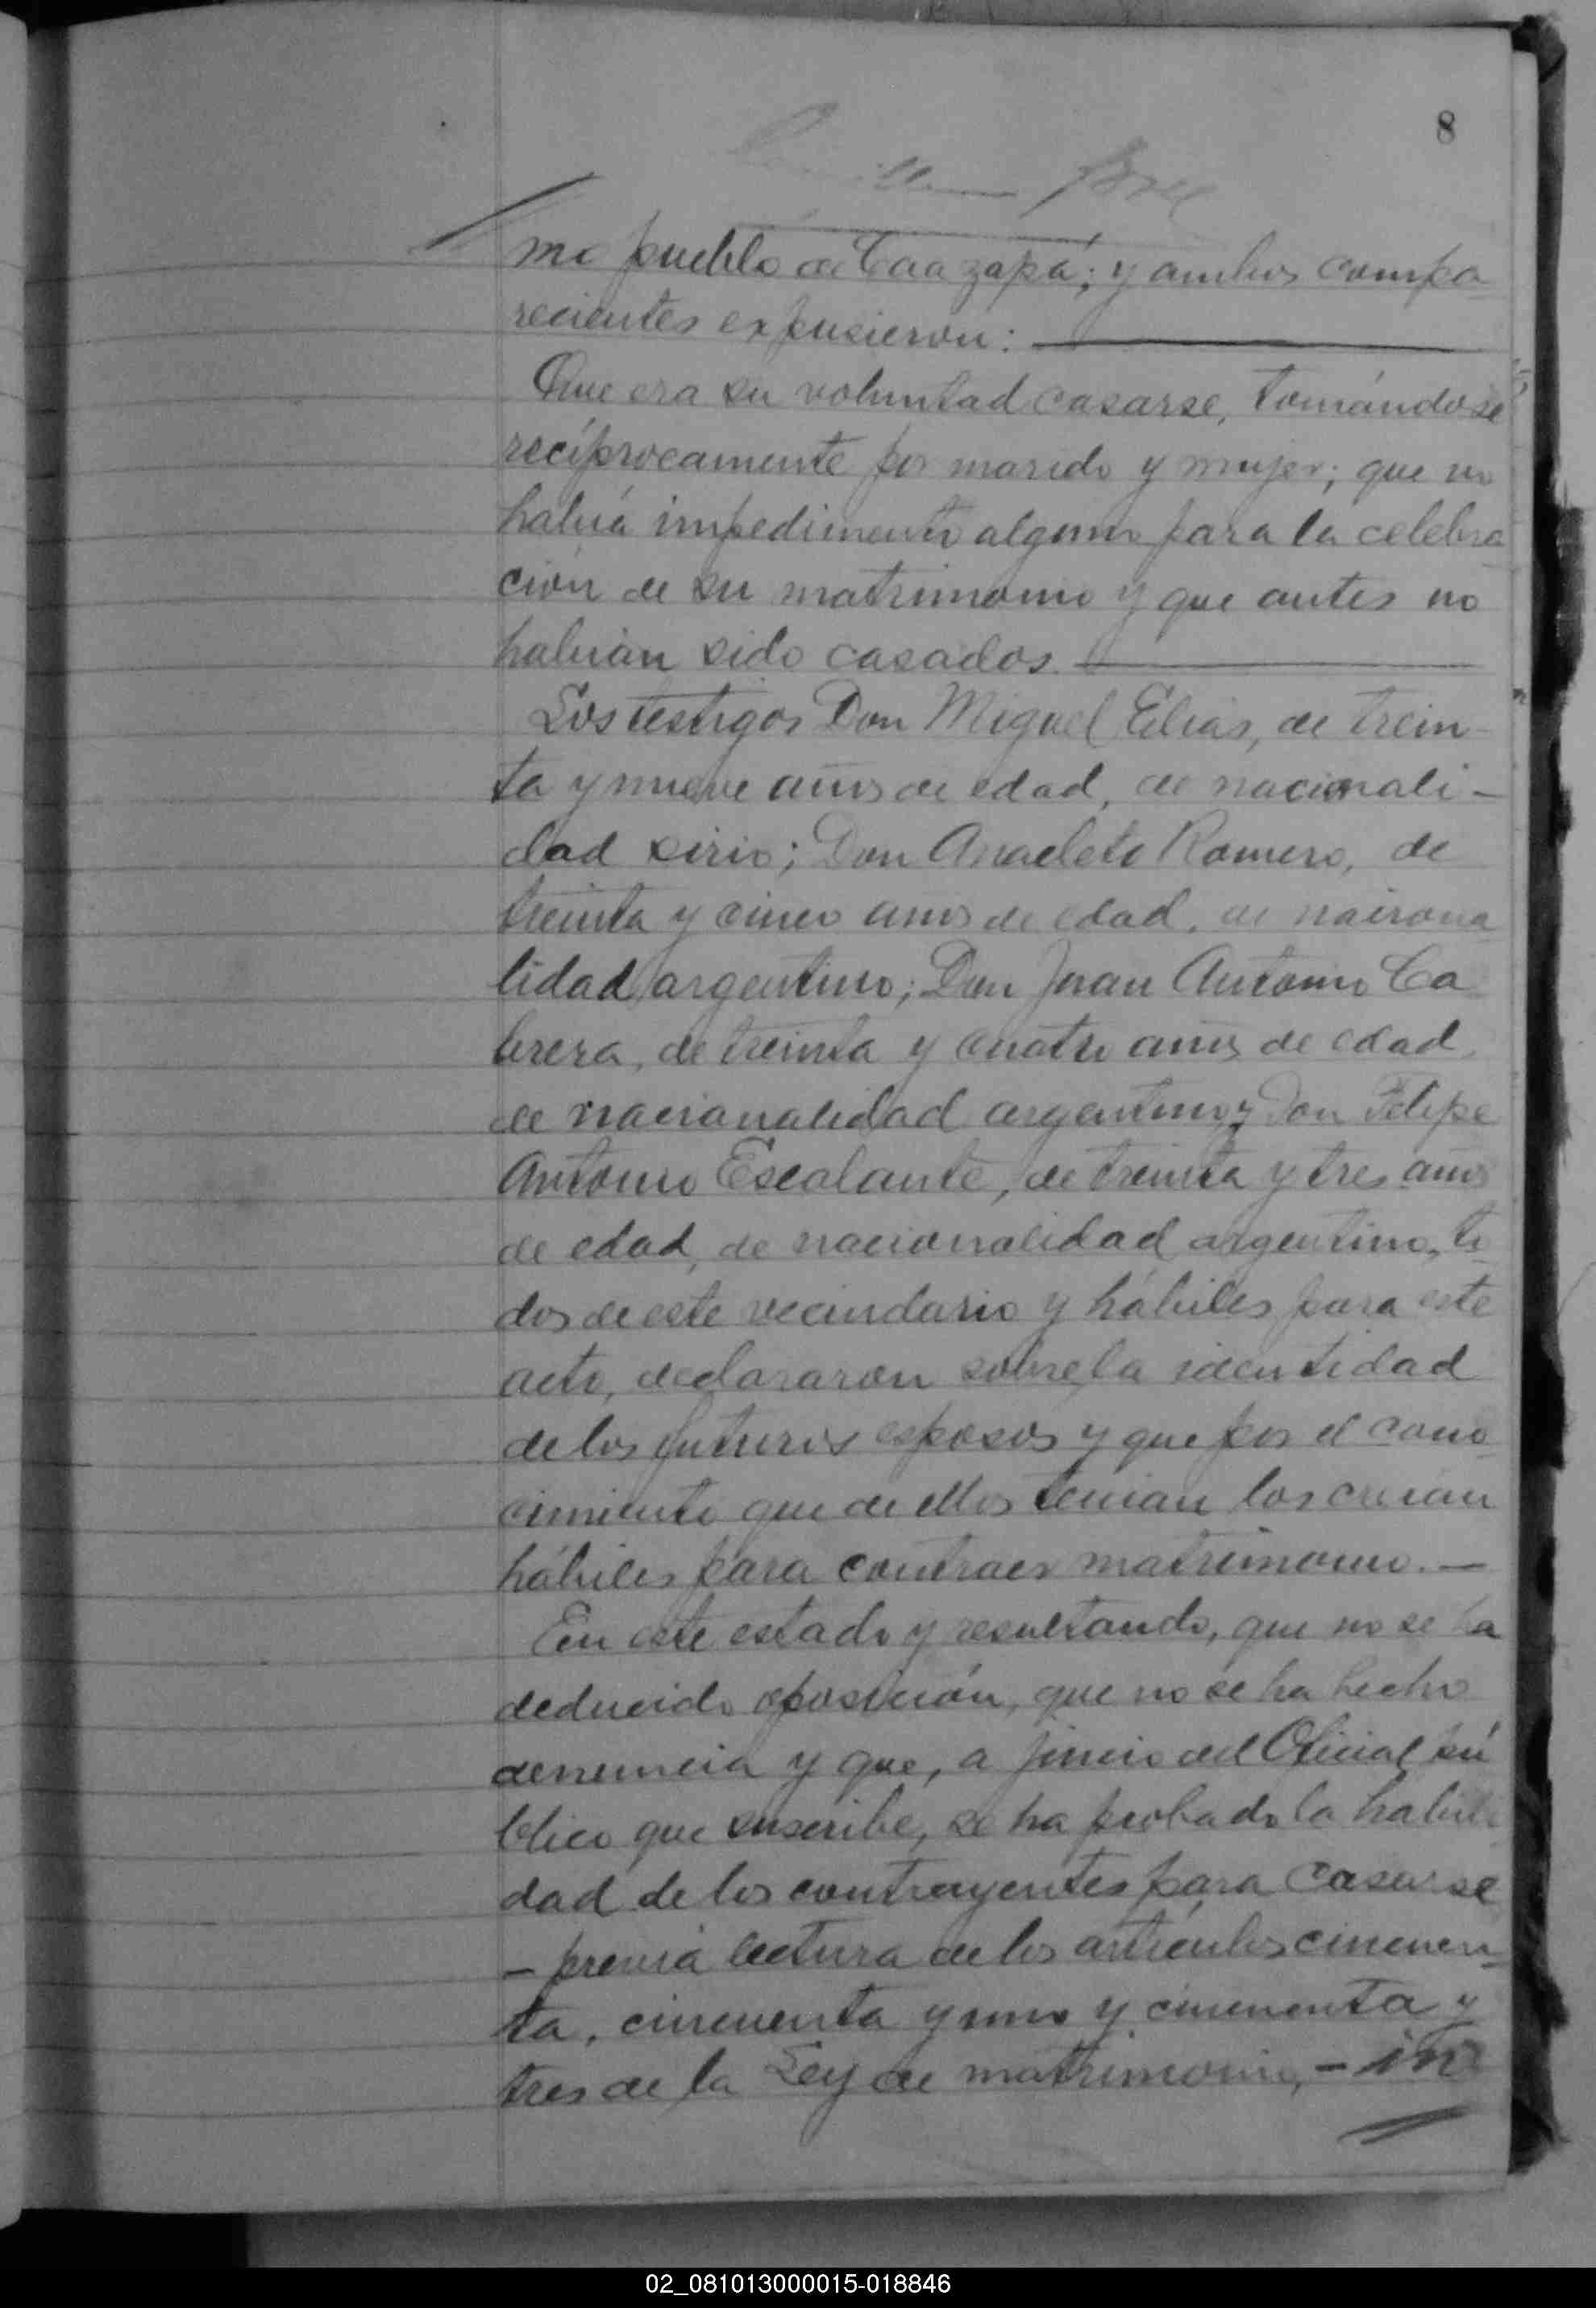 8
mo pueblo de Caazapá; y ambos compa
recientes expusieron:
Que era su voluntad casarse, tomándose
recíprocamente por marido y mujer; que no
había impedimento alguno para la celebra
ción de su matrimonio y que antes no
habían sido casados.
Los testigos Don Miguel Elias, de trein-
ta y nueve años de edad, de nacionali-
dad sirio; Don Anacleto Romero, de
treinta y cinco años de edad, de naciona
lidad argentino; Don Juan Antonio Ca
brera, de treinta y cuatro años de edad,
de nacionalidad argentino y Don Felipe
Antonio Escalante, de treinta y tres años
de edad, de nacionalidad argentino, to
dos de este vecindario y hábiles para este
acto, declararon sobre la identidad
de los futuros esposos y que por el cono
cimiento que de ellos tenían los creían
hábiles para contraer matrimonio. —
En este estado y resultando, que no se ha
deducido oposición, que no se ha hecho
denuncia y que, a juicio del Oficial pú
blico que suscribe, se ha probado la habili
dad de los contrayentes para casarse
— previa lectura de los artículos cincuen-
ta, cincuenta y uno y cincuenta y
tres de la Ley de matrimonio, — in
02_081013000015-018846